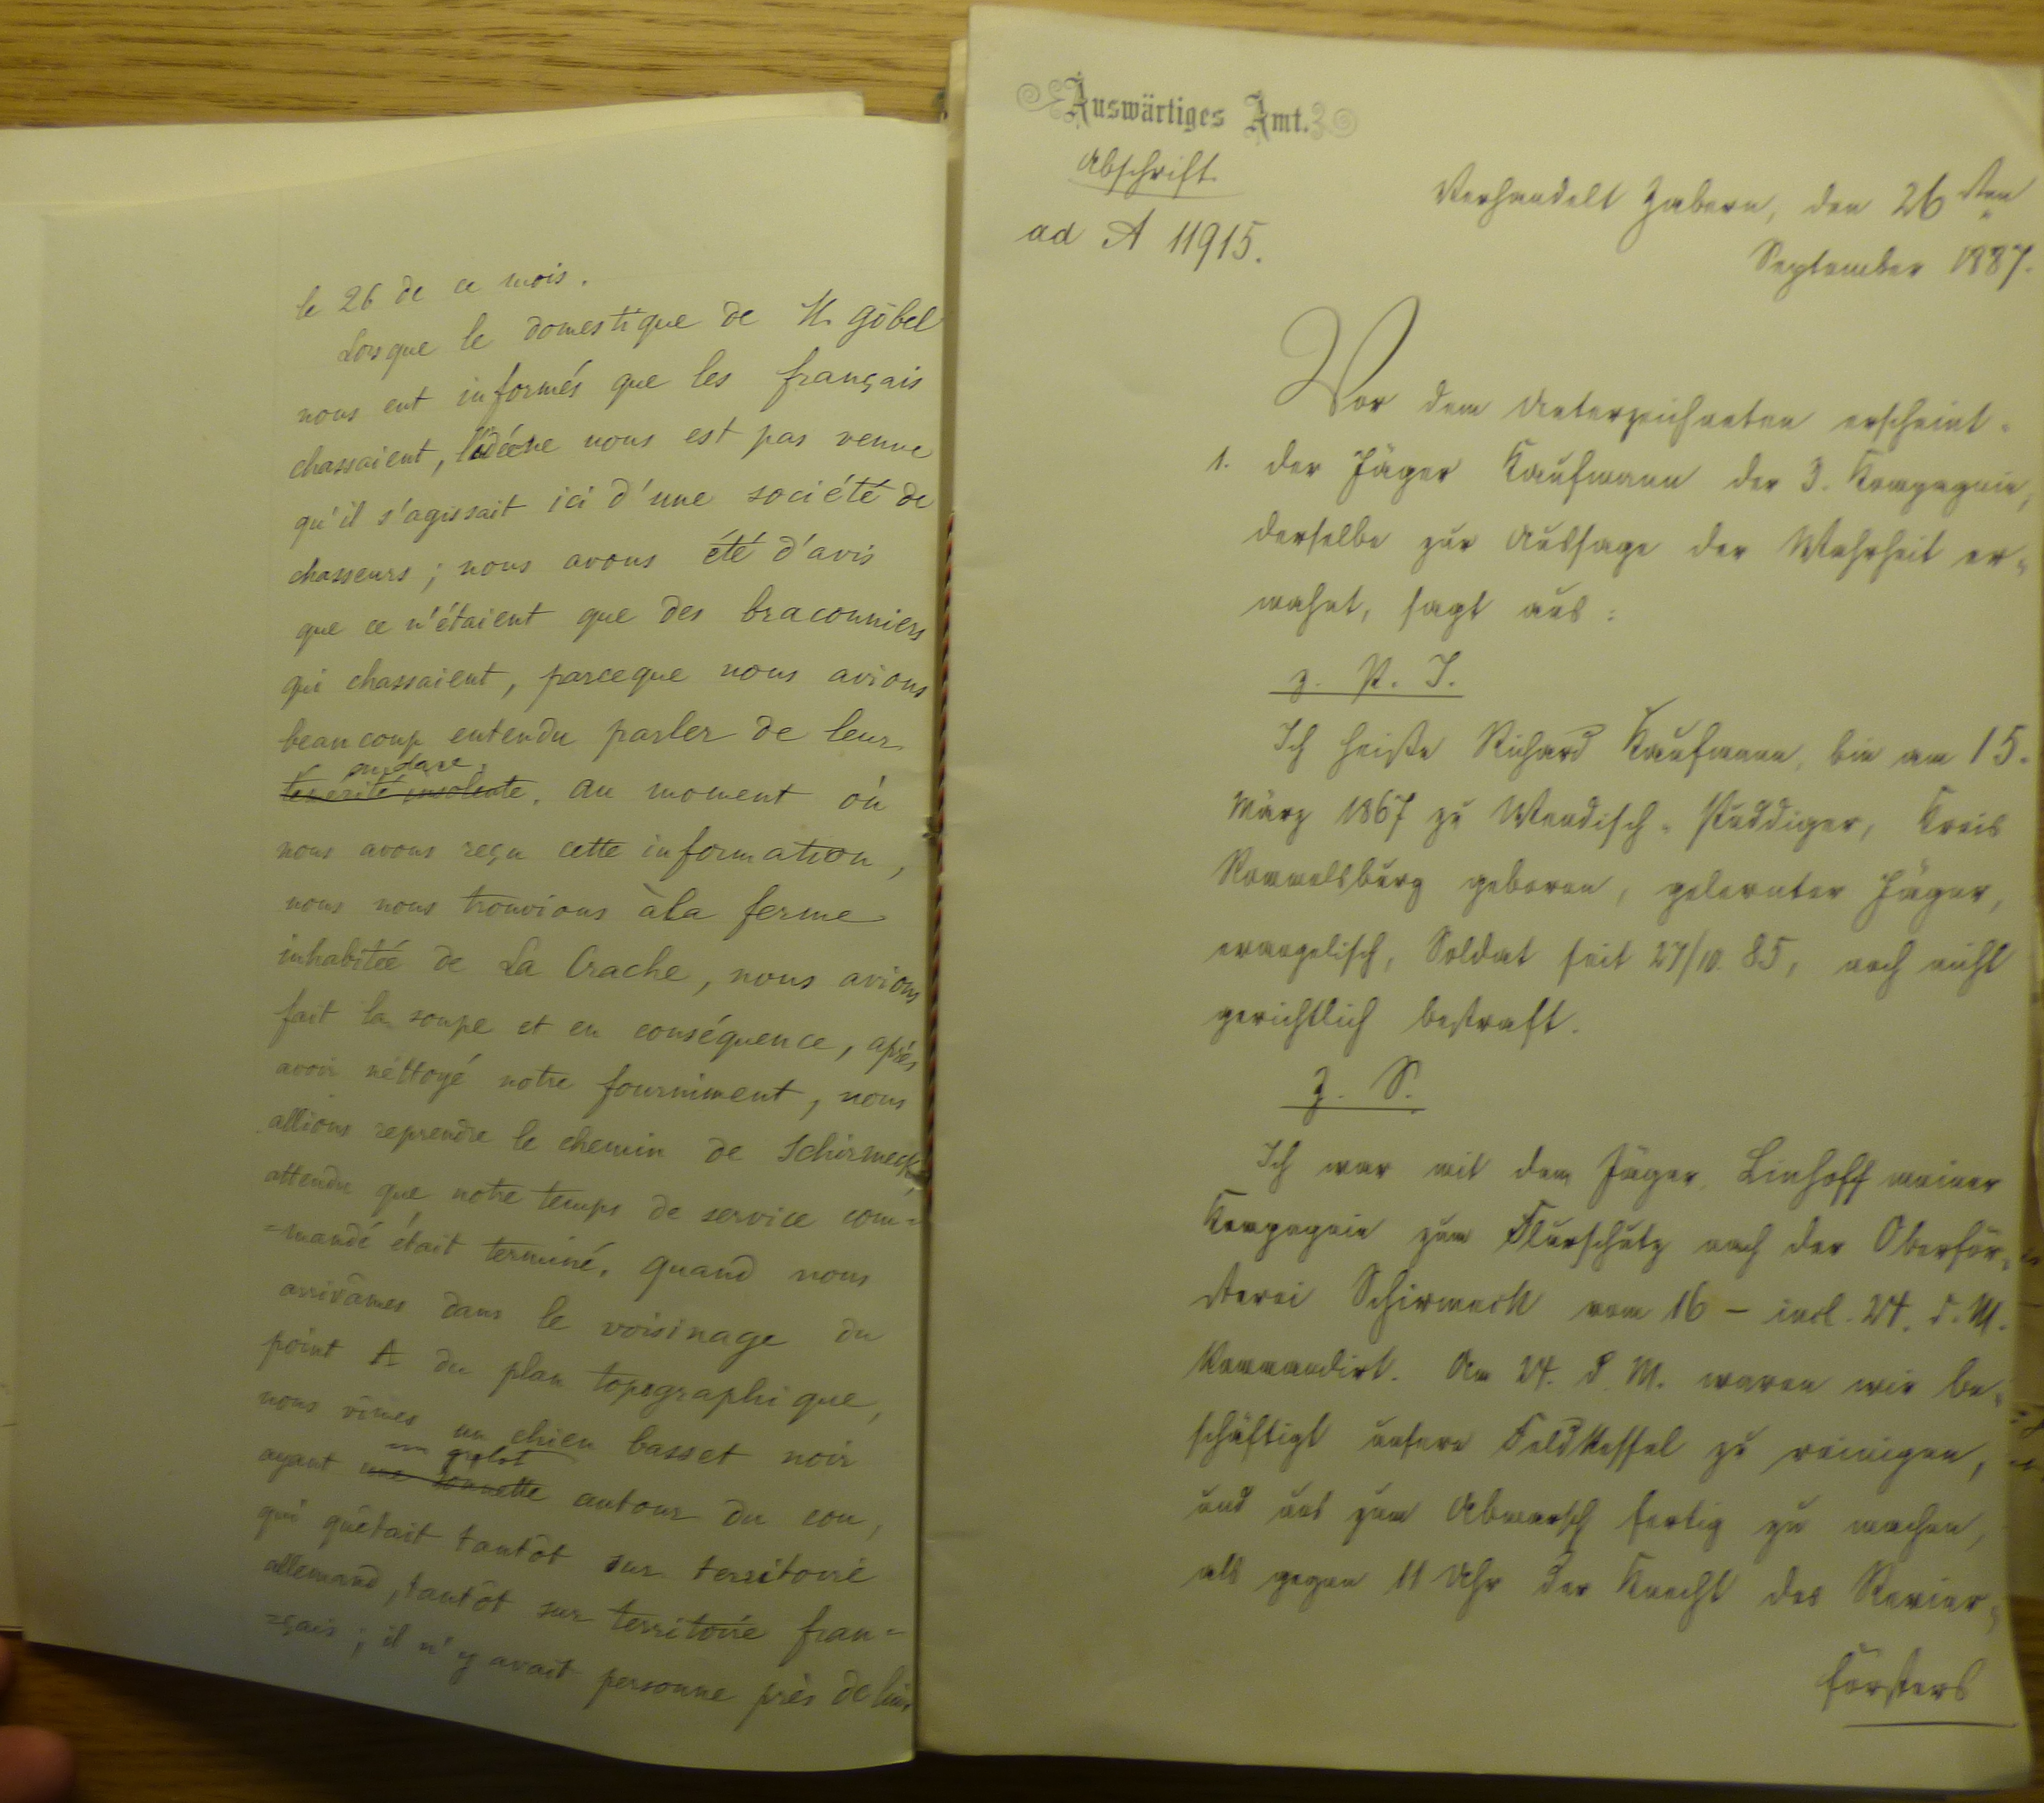 le 26 de ce mois.
Lorsque le domestique de H. Göbel
nous eut informés que les français
chassaient, l'idée ne nous est pas venue
qu'il s'agissait ici d'une société de
chasseurs ; nous avons été d'avis
que ce n'étaient que des braconniers
qui chassaient, parceque nous avions
beaucoup entendu parler de leur
audace
témérité insolente. Au moment où
nous avons reçu cette information,
nous nous trouvions à la ferme
inhabitée de La Crache, nous avions
fait la soupe et en conséquence, après
avoir néttoyé notre fourniment, nous
allions reprendre le chemin de Schirmeck,
attendu que notre temps de service com=
=mandé était terminé. Quand nous
arrivâmes dans le voisinage du
point A du plan topographique,
nous vîmes un chien basset noir
un grelot
ayant une sonnette autour du cou,
qui quêtait tantôt sur territoire
allemand, tantôt sur territoire fran=
=çais ; il n'y avait personne près de lui.
Auswärtiges Amt.
Abschrift.
ad A 11915.
Verhandelt Zabern, den 26sten
September 1887.
Vor dem Unterzeichneten erscheint
1. der Jäger Kaufmann der 3. Kompagnie,
derselbe zur Aussage der Wahrheit er-
mahnt, sagt aus:
z. P. I.
Ich heiße Richard Kaufmann, bin am 15.
März 1867 zu Wendisch-Puddiger, Kreis
Rummelsburg geboren, gelernter Jäger,
evangelisch, Soldat seit 27/10. 85, noch nicht
gerichtlich bestraft.
Z. S.
Ich war mit dem Jäger Linhoff meiner
Kompagnie zum Flurschutz nach der Oberför-
sterei Schirmeck vom 16 – incl. 24. d. M.
kommandirt. Am 24. d. M. waren wir be-
schäftigt unsere Feldkessel zu reinigen,
und uns zum Abmarsch fertig zu machen,
als gegen 11 Uhr der Knecht des Revier-
försters